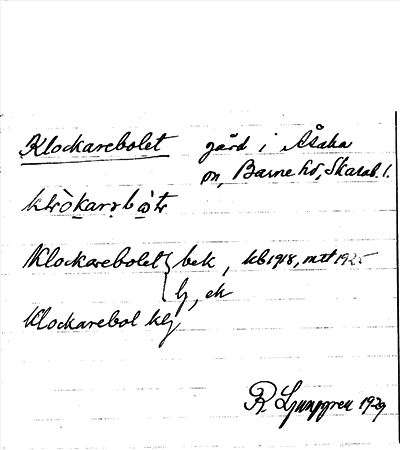 Klockarebolet gård i Åsaka
sn, Barne hd, Skarab. l.
Klockarebolet } bek, kb 1918, mtl 1925
lj, ek
Klockarebol klj
R Ljunggren 1929